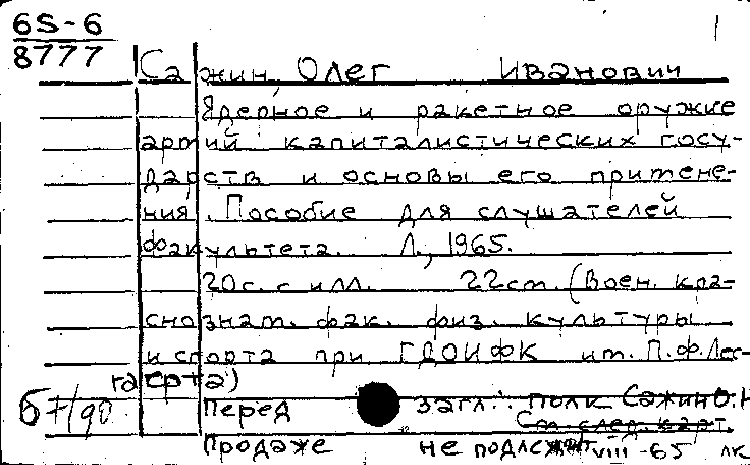 6S-6
8777
1
Сажин, Олег Иванович
Ядерное и ракетное оружие
армий капиталистических госу-
дарств и основы его примене-
ния. Пособие для слушателей
факультета. Л., 1965.
20с. с илл. 22см. (Воен. кра-
снознам. фак. физ. культуры
и спорта при ГДОИФК им. П.Ф.Лес-
гафта)
67/90
Перед загл.: полк Сажин О.И
См. след. карт.
Продаже не подлежит VIII-65